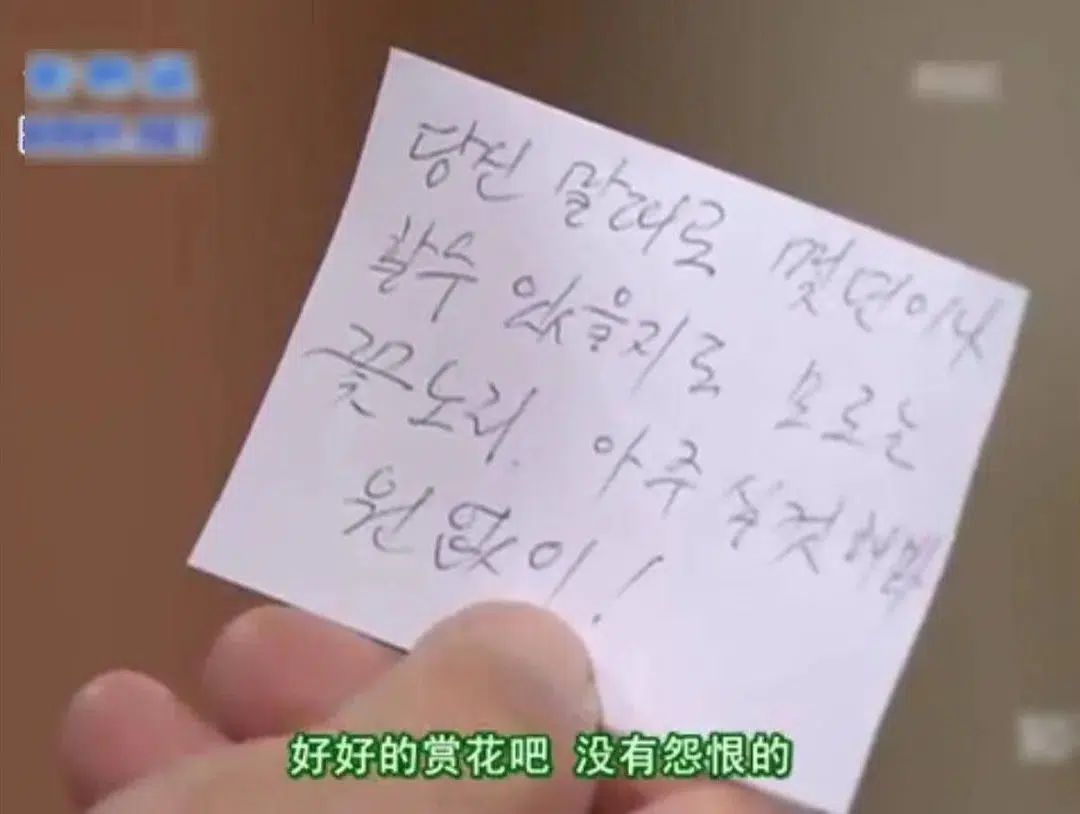 당신 말대로 몇 번이나
할 수 있을지도 모르는
꽃노리. 아주 실컷 해봐
원없이!
好好的赏花吧 没有怨恨的